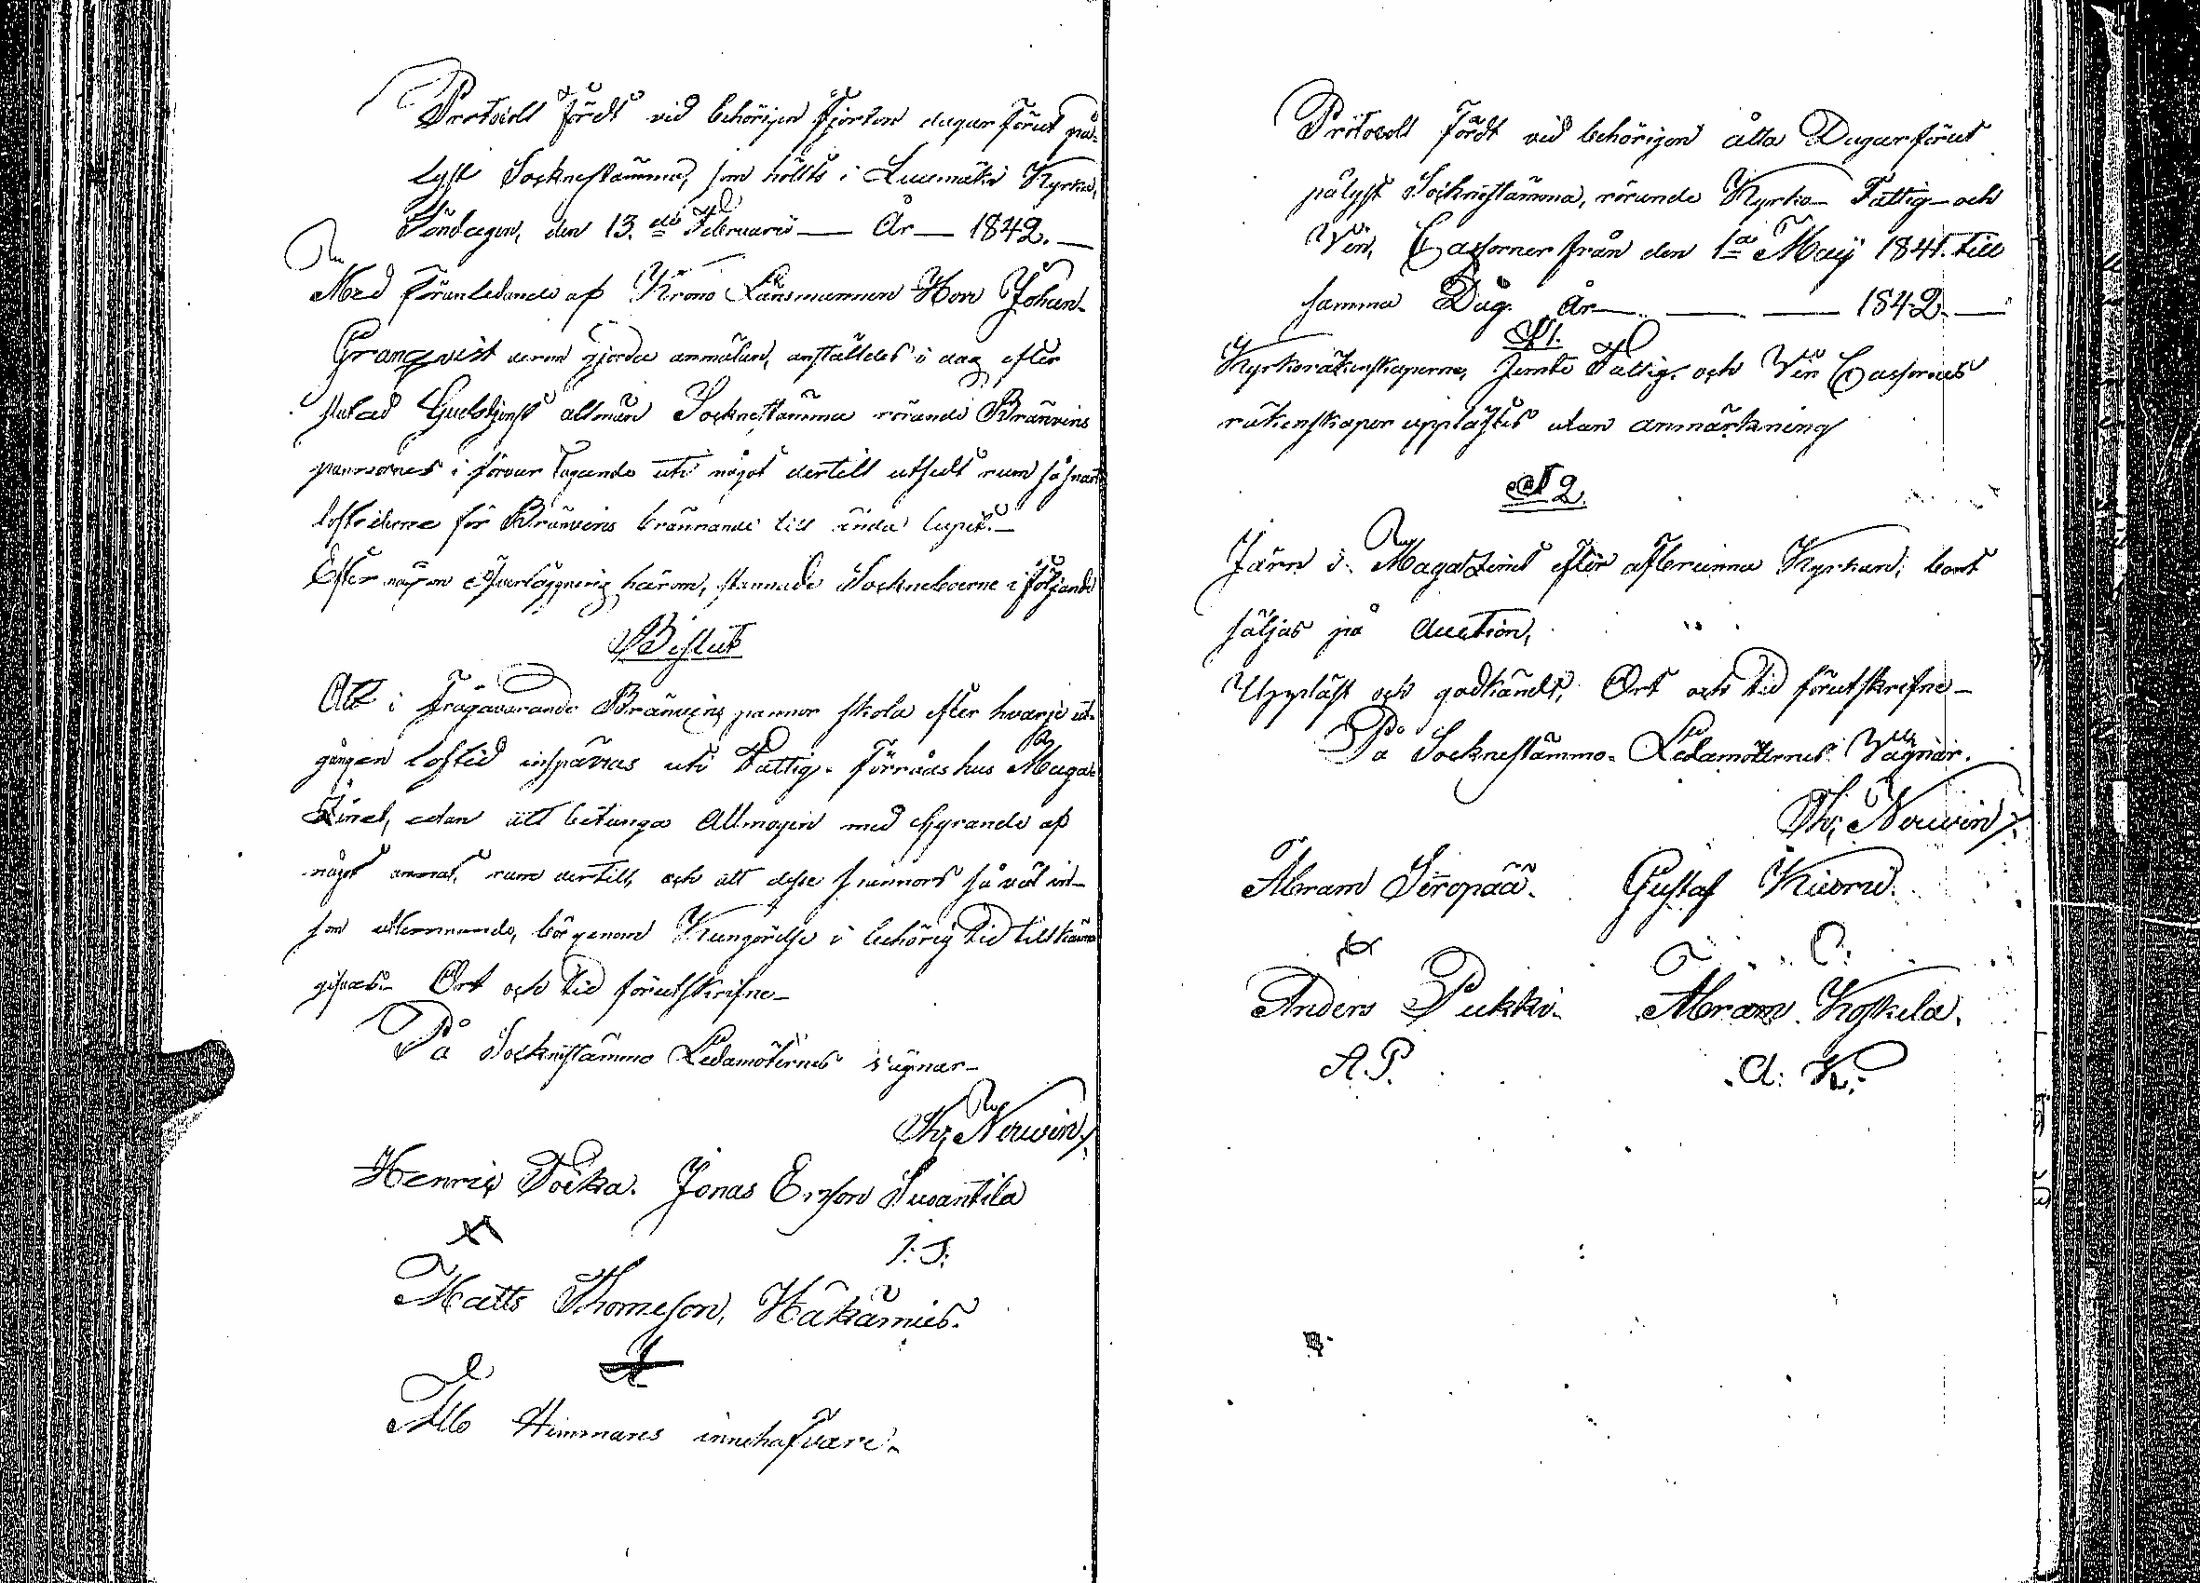 Protocoll fördt vid behörigen fjorton dagar förut på-
lyst Socknestämma, som hölts i Luumäki Kyrka,
Söndagen, den 13.de Februarii — År — 1842. —
Med föranledande af Krono Länsmannen Herr Johan
Granqvist derom gjorda anmälan, anställdes i dag efter
slutad Gudstjenst allmän Sockнestämma rörande Bränvins
pannornes i förvar tagande uti något dertill utsedt rum så snart
lofstiderne för Bränvins brännande till ända lupit. —
Efter någon öfverläggning härom, stannade Sockneboerne i följande
Beslut
Att i frågavarande Bränvins pannor skola efter hvarje ut-
gången lofstid inspärras uti Fattig-Förråds hus Maga-
Zinet, utan att betunga Allmogen med hyrande af
något annat rum dertill, och att desse pannors så väl in-
som utlemnande, bör genom Kungörelse i behörig tid tillkänna
gifvas. — Ort och tid förutskrifne —
På Sockнestämmo Ledamöternes vägnar —
Th: Nerwin
Henric Toikka. Jonas Ersson Suoanttila
I: S:
Matts Thomeson, Häkämies.
Alla Hemmans innehafvare. —
Protocoll fördt vid behörigen åtta Dagar förut
pålyst Sockнestämma, rörande Kyrko- Fattig- och
Vin, Cassorner från den 1a Maij 1841. till
samma Dag. År — — — 1842. —
§ 1.
Kyrkoräkenskaperne, Jemte Fattig- och Vin Cassornes
räkenskaper upplästes utan anmärkning
§ 2.
Järn i Magatzinet efter afbrunna Kyrkan; bort
säljas på Auction,
Uppläst och godkändt; Ort och tid förutskrifne —
På Sockнestämmo-Ledamöternes Vägnar.
Th: Nerwin
Abram Seropää. Gustaf Kiuru.
Anders Pukki. Abram Koskela.
A. P. A: K: